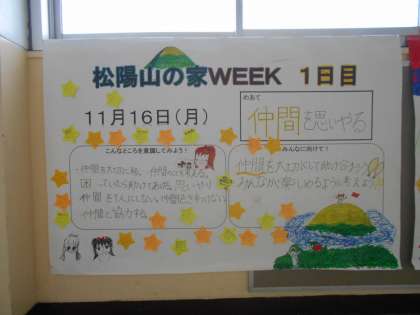 松陽山の家WEEK 1日目
11月16日(月)
めあて
仲間を思いやる
こんなところを意識してみよう!
・仲間を大切に思い、仲間のことを考える。
困っていたら助けてあげる。思いやり
仲間を1人にしない。
仲間と協力する。
みんなに向けて!
仲間を大切にして助け合おう
みんなが楽しめるように考えよう。